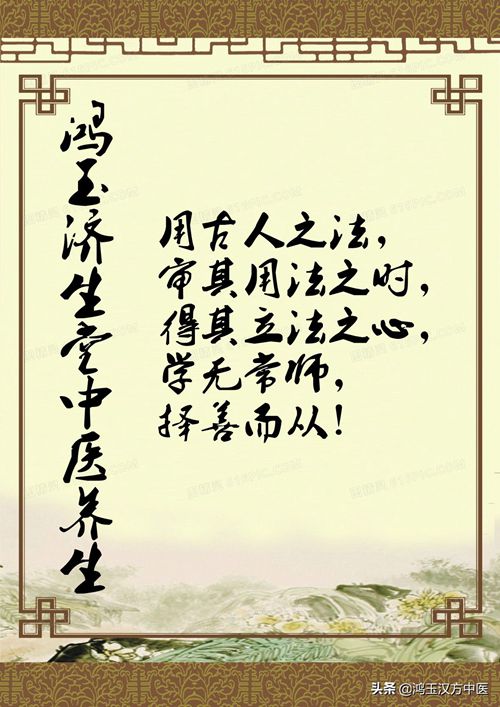 鸿玉济生堂中医养生
用古人之法，
审其用法之时，
得其立法之心，
学无常师，
择善而从！
头条 @鸿玉汉方中医